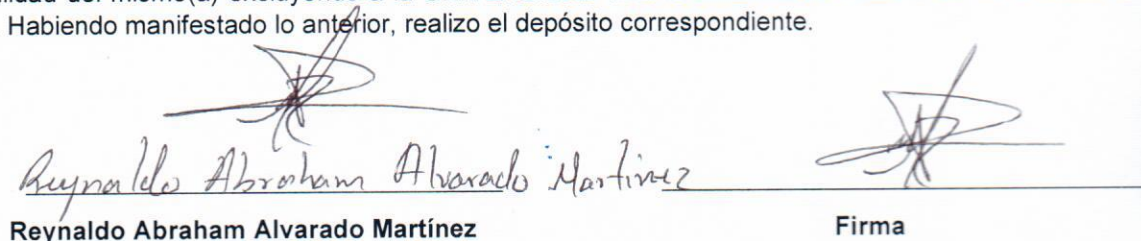 Habiendo manifestado lo anterior, realizo el depósito correspondiente.
Reynaldo Abraham Alvarado Martinez
Reynaldo Abraham Alvarado Martínez
Firma